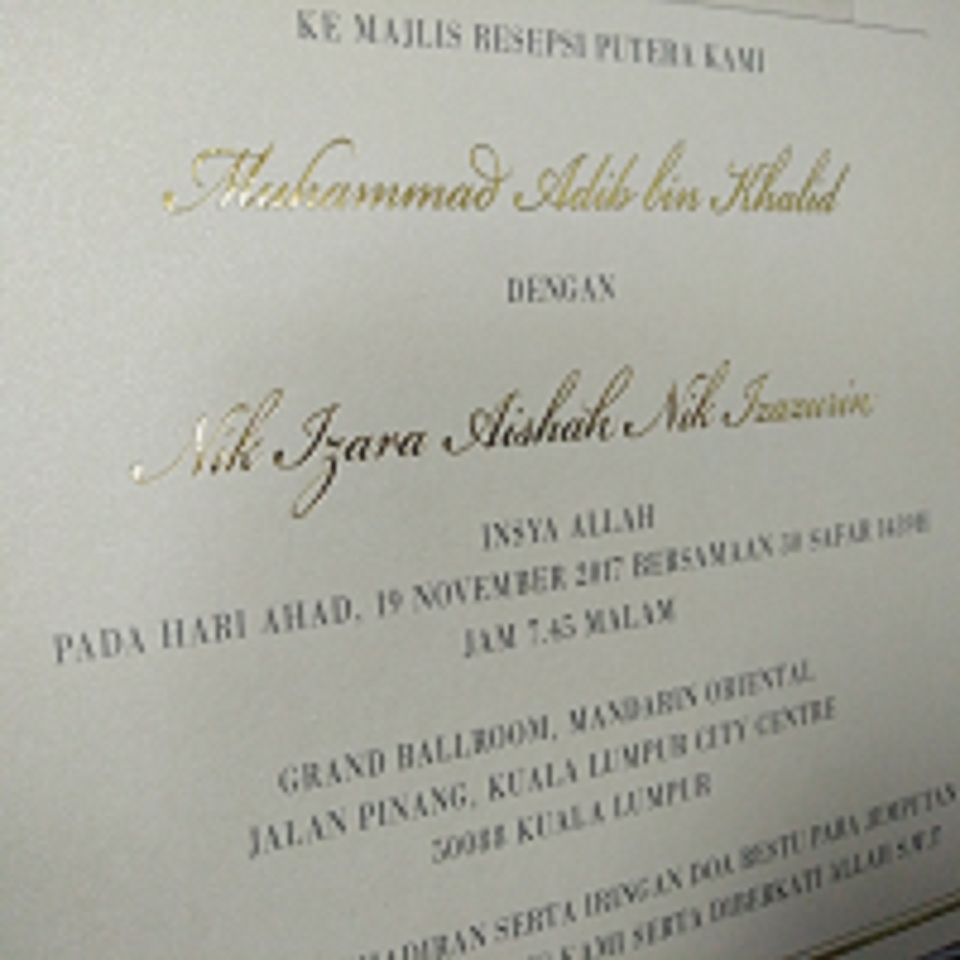 KE MAJLIS RESEPSI PUTERA KAMI
Muhammad Adib bin Khalid
DENGAN
Nik Izara Aishah Nik Izazurin
INSYA ALLAH
PADA HARI AHAD, 19 NOVEMBER 2017 BERSAMAAN 30 SAFAR 1439H
JAM 7.45 MALAM
GRAND BALLROOM, MANDARIN ORIENTAL
JALAN PINANG, KUALA LUMPUR CITY CENTRE
50088 KUALA LUMPUR
SERTA IRINGAN DOA RESTU PARA JEMPUTAN
KAMI SERTA DIBERKATI ALLAH S.W.T